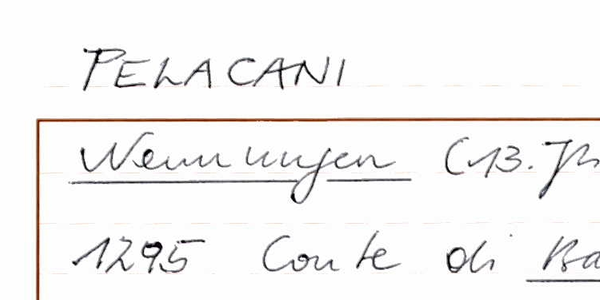 PELACANI
Nennungen (13. Jh
1295 Conte di Ba